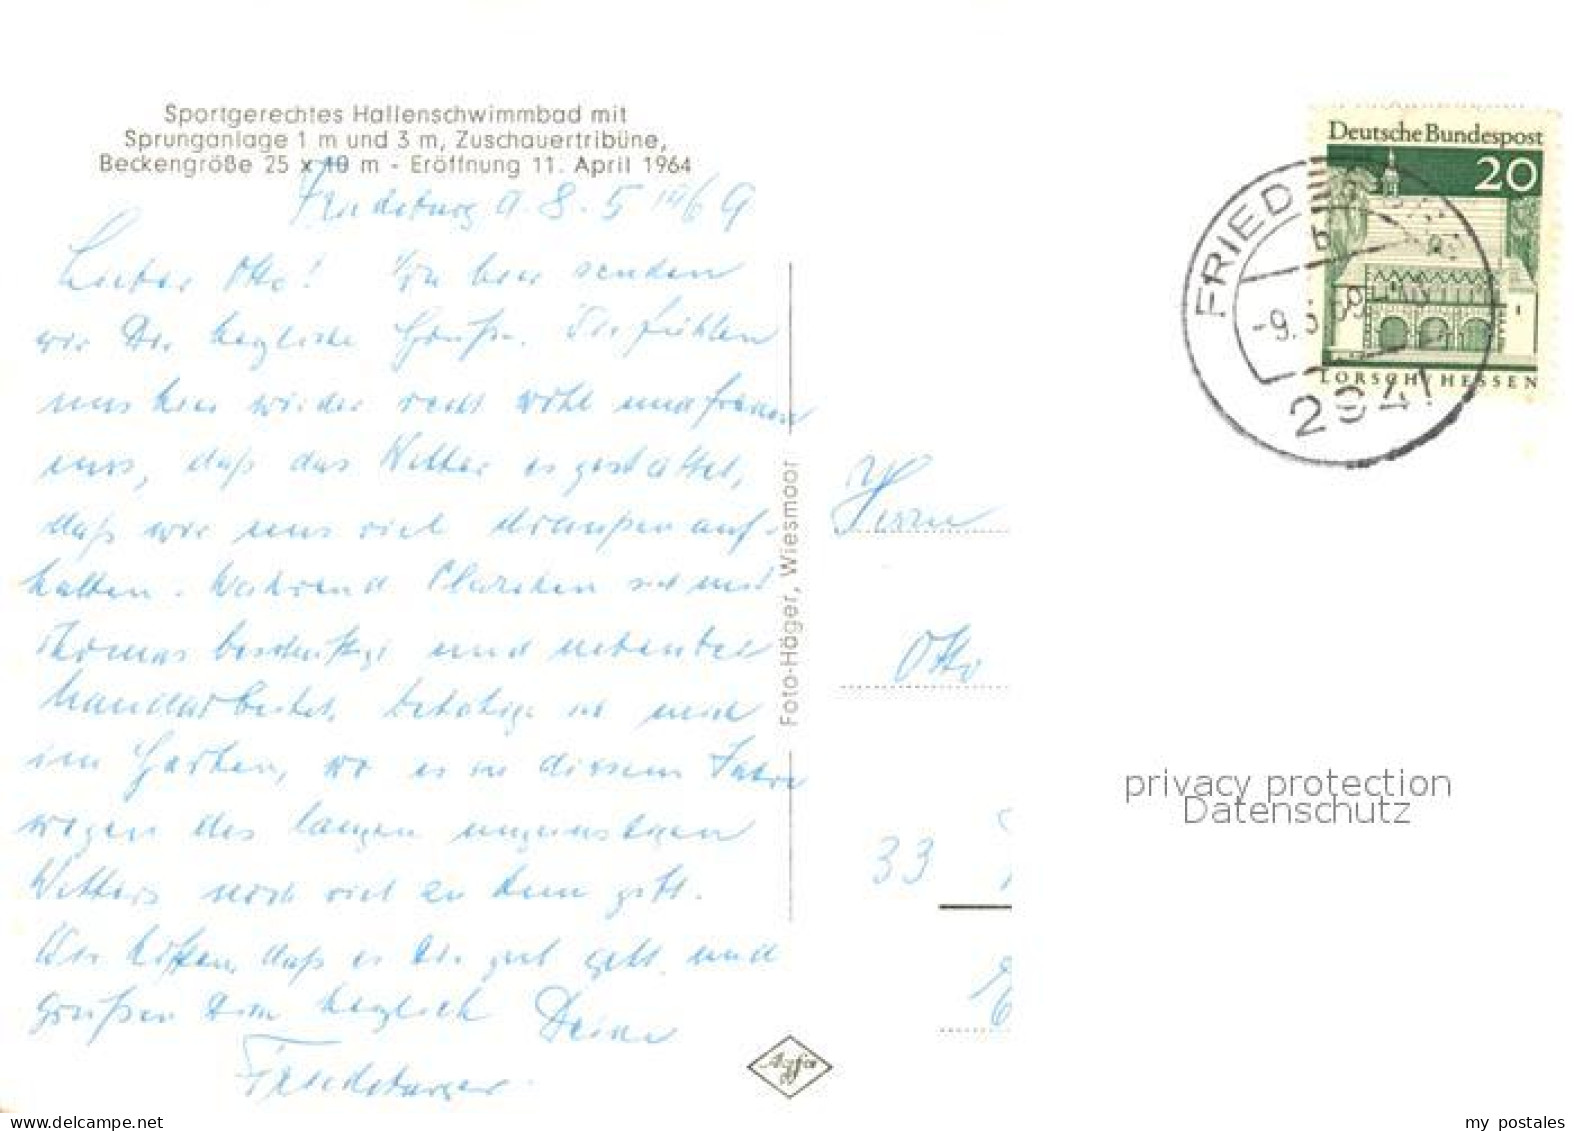 Sportgerechtes Hallenschwimmbad mit
Sprunganlage 1 m und 3 m, Zuschauertribüne,
Beckengröße 25 x 10 m - Eröffnung 11. April 1964
Friedeburg d. 8. 5. 1969
Lieber Otto! Von hier senden
wir Dir herzliche Grüße. Wir fühlen
uns hier wieder recht wohl und freuen
uns, daß das Wetter es gestattet,
daß wir uns viel draußen auf-
halten. Während Clärchen sich mit
Thomas beschäftigt und nebenbei
handarbeitet, betätige ich mich
im Garten, wo es in diesem Jahre
wegen des langen ungünstigen
Wetters noch viel zu tun gibt.
Wir hoffen, daß es Dir gut geht und
grüßen Dich herzlich Deine
Friedeburger.
Foto-Häger, Wiesmoor
Agfa
Deutsche Bundespost
20
LORSCH/HESSEN
FRIED
b
-9.5.69
2941
Herrn
Otto
33
privacy protection
Datenschutz
www.delcampe.net
my_postales